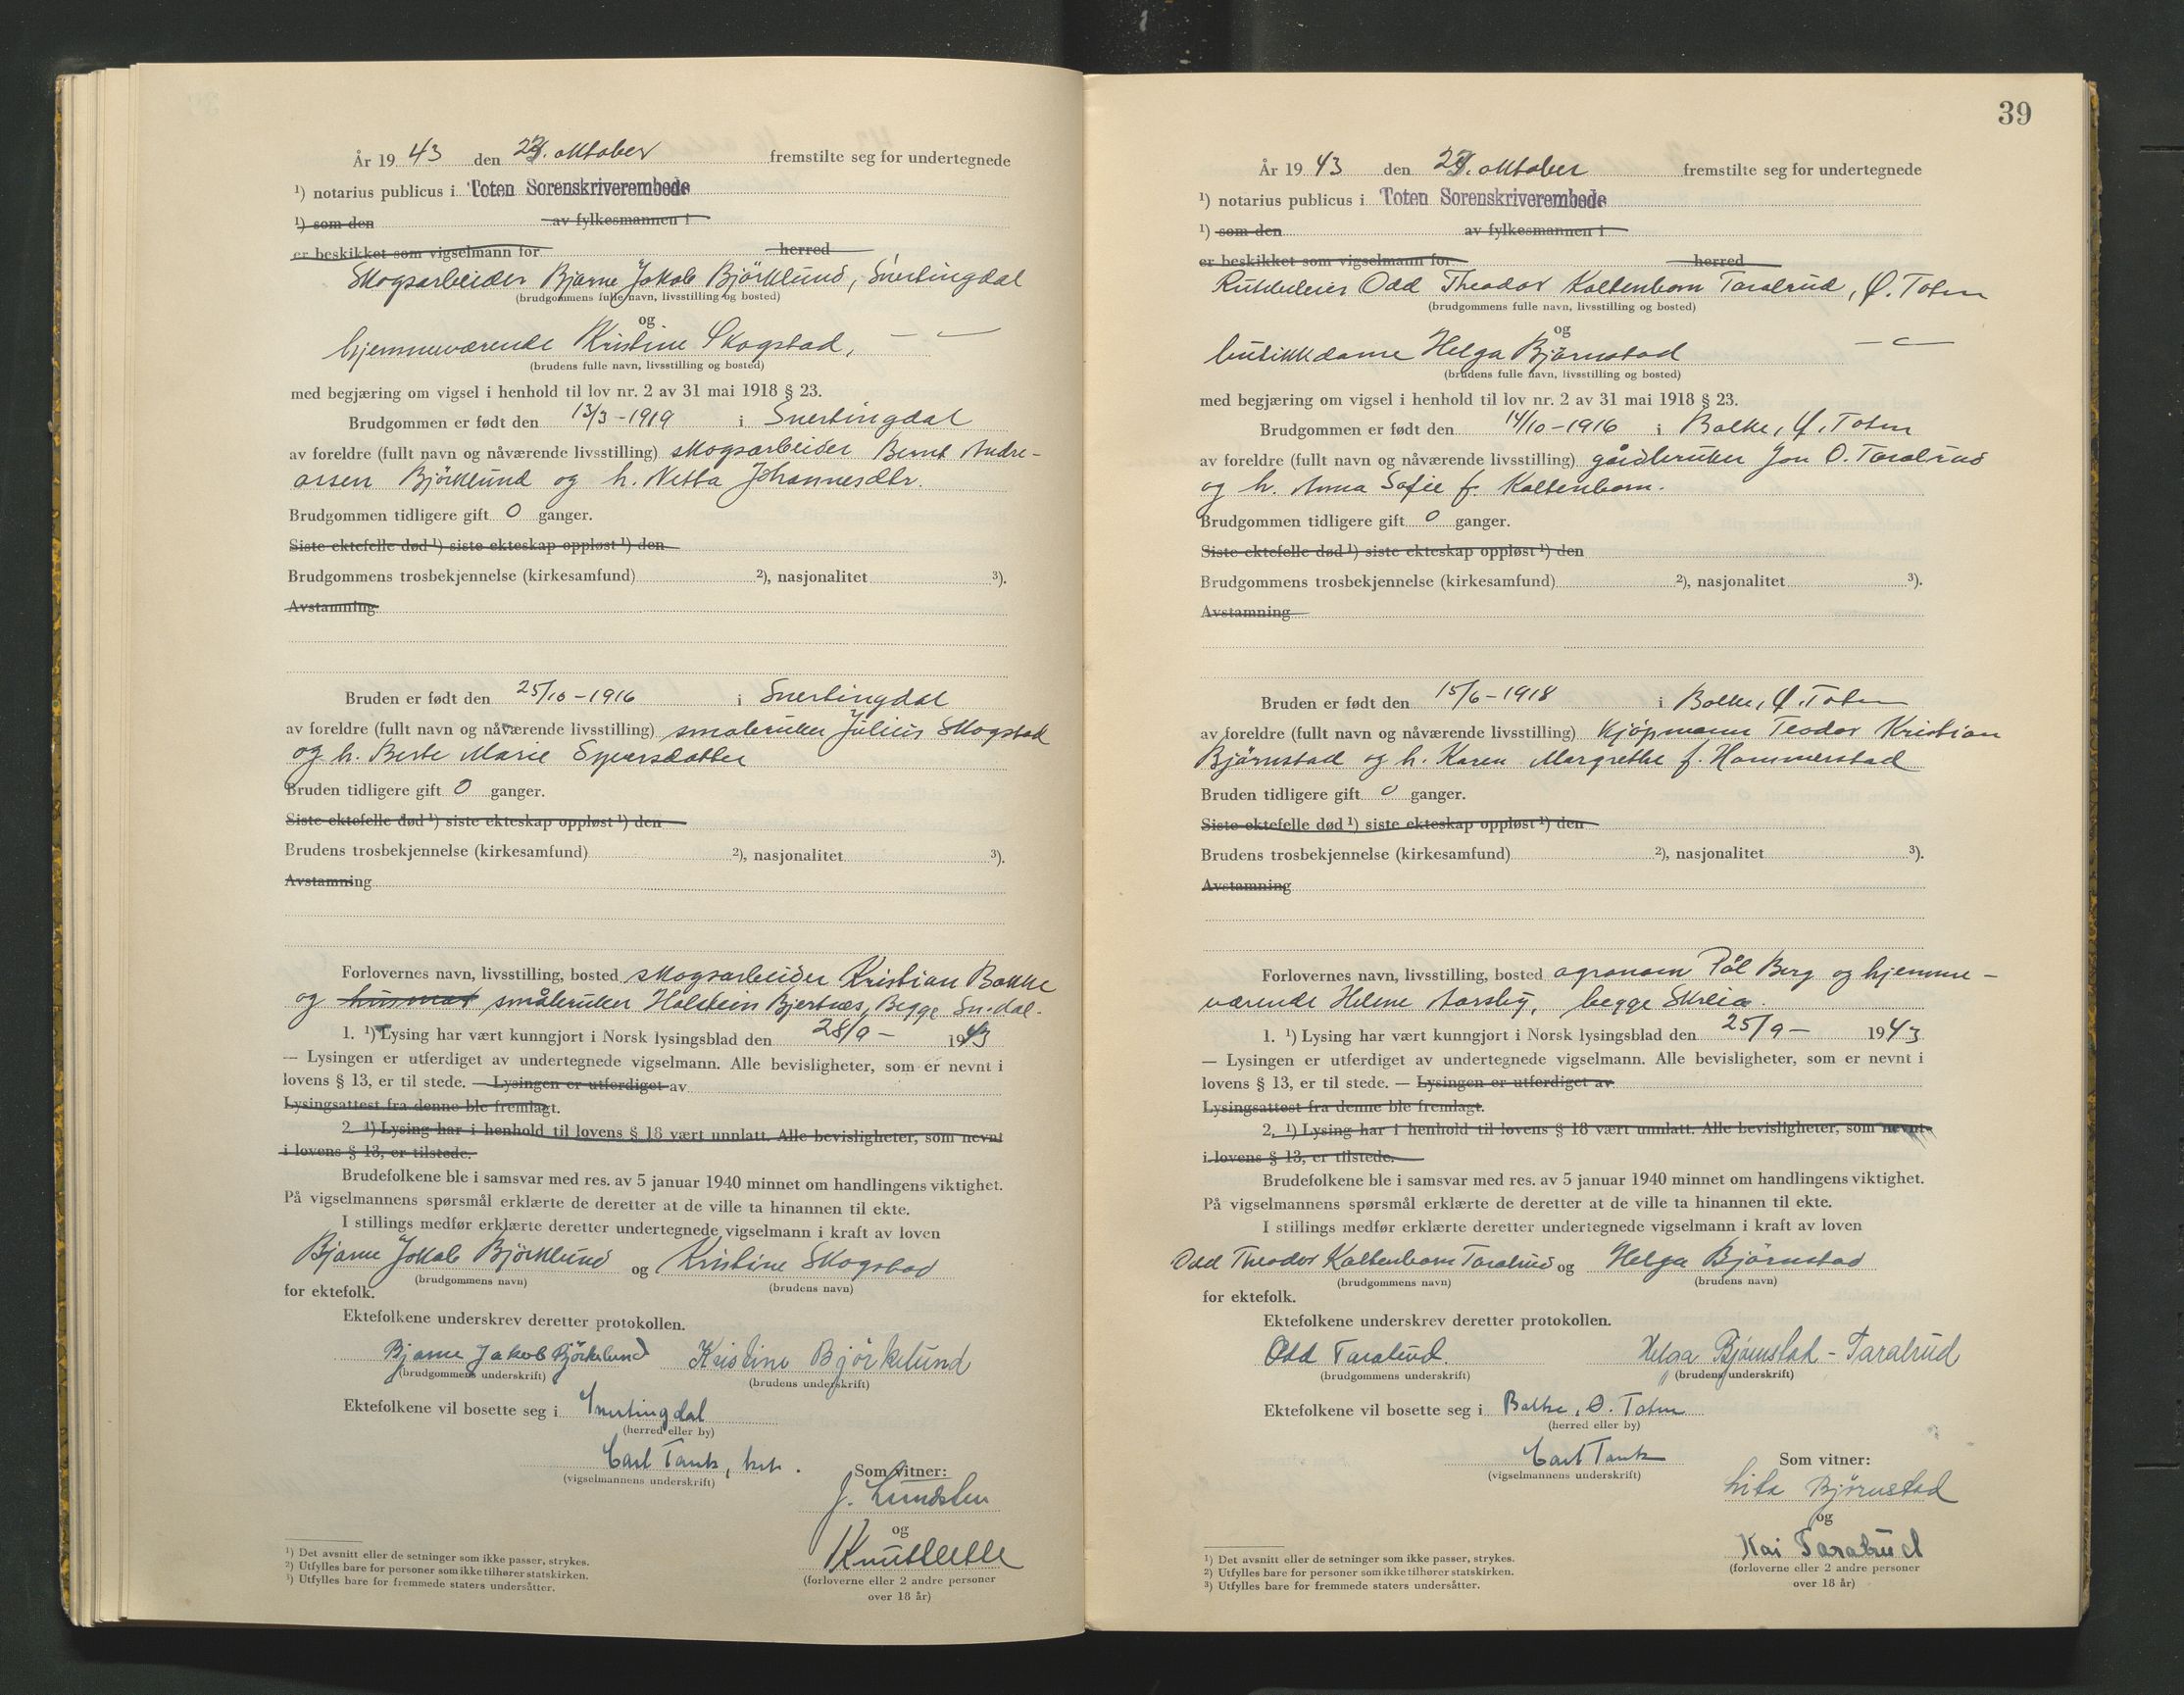 År 19 43 den 23. oktober fremstilte seg for undertegnede
¹) notarius publicus i Toten Sorenskriverembede
¹) som den av fylkesmannen i
er beskikket som vigselmann for herred
Skogsarbeider Bjarne Jakob Björklund, Snertingdal
(brudgommens fulle navn, livsstilling og bosted)
og
hjemmeværende Kristine Skogstad, — " —
(brudens fulle navn, livsstilling og bosted)
med begjæring om vigsel i henhold til lov nr. 2 av 31 mai 1918 § 23.
Brudgommen er født den 13/3-1919 i Snertingdal
av foreldre (fullt navn og nåværende livsstilling) skogsarbeider Bernt Andre-
assen Björklund og h. Netta Johannesdtr.
Brudgommen tidligere gift 0 ganger.
Siste ektefelle død ¹) siste ekteskap oppløst ¹) den
Brudgommens trosbekjennelse (kirkesamfund) ²), nasjonalitet ³).
Avstamning
Bruden er født den 25/10-1916 i Snertingdal
av foreldre (fullt navn og nåværende livsstilling) småbruker Julius Skogstad
og h. Berte Marie Syversdatter
Bruden tidligere gift 0 ganger.
Siste ektefelle død ¹) siste ekteskap oppløst ¹) den
Brudens trosbekjennelse (kirkesamfund) ²), nasjonalitet ³).
Avstamning
Forlovernes navn, livsstilling, bosted skogsarbeider Kristian Bakke
og småbruker Holstein Bjertnes, Begge Sn.dal.
1. ¹) Lysing har vært kunngjort i Norsk lysingsblad den 28/9 - 1943
— Lysingen er utferdiget av undertegnede vigselmann. Alle bevisligheter, som er nevnt i
lovens § 13, er til stede. — Lysingen er utferdiget av
Lysingsattest fra denne ble fremlagt.
2. ¹) Lysing har i henhold til lovens § 18 vært unnlatt. Alle bevisligheter, som nevnt
i lovens § 13, er tilstede.
Brudefolkene ble i samsvar med res. av 5 januar 1940 minnet om handlingens viktighet.
På vigselmannens spørsmål erklærte de deretter at de ville ta hinannen til ekte.
I stillings medfør erklærte deretter undertegnede vigselmann i kraft av loven
Bjarne Jakob Björklund og Kristine Skogstad
(brudgommens navn) (brudens navn)
for ektefolk.
Ektefolkene underskrev deretter protokollen.
Bjarne Jakob Björkelund Kristine Bjørkelund
(brudgommens underskrift) (brudens underskrift)
Ektefolkene vil bosette seg i Snertingdal
(herred eller by)
Carl Tank,
(vigselmannens underskrift)
Som vitner:
J. Lundsten
og
(forloverne eller 2 andre personer
over 18 år)
¹) Det avsnitt eller de setninger som ikke passer, strykes.
²) Utfylles bare for personer som ikke tilhører statskirken.
³) Utfylles bare for fremmede staters undersåtter.
39
År 19 43 den oktober fremstilte seg for undertegnede
¹) notarius publicus i Toten Sorenskriverembede
¹) som den av fylkesmannen i
er beskikket som vigselmann for herred
Rutebileier Odd Theodor Kaltenborn Taralrud, Ø. Toten
(brudgommens fulle navn, livsstilling og bosted)
og
butikkdame Helga Bjørnstad — " —
(brudens fulle navn, livsstilling og bosted)
med begjæring om vigsel i henhold til lov nr. 2 av 31 mai 1918 § 23.
Brudgommen er født den 14/10-1916 i Balke, Ø. Toten
av foreldre (fullt navn og nåværende livsstilling) gårdbruker Jon O. Taralrud
og h. Anna Sofie f. Kaltenborn.
Brudgommen tidligere gift 0 ganger.
Siste ektefelle død ¹) siste ekteskap oppløst ¹) den
Brudgommens trosbekjennelse (kirkesamfund) ²), nasjonalitet ³).
Avstamning
Bruden er født den 15/6-1918 i Balke, Ø. Toten
av foreldre (fullt navn og nåværende livsstilling) Kjøpmann Teodor Kristian
Bjørnstad og h. Karen Margrethe f. Hammerstad
Bruden tidligere gift 0 ganger.
Siste ektefelle død ¹) siste ekteskap oppløst ¹) den
Brudens trosbekjennelse (kirkesamfund) ²), nasjonalitet ³).
Avstamning
Forlovernes navn, livsstilling, bosted agronom Pål Berg og hjemme-
værende Helene Aarsby, begge Skreia.
1. ¹) Lysing har vært kunngjort i Norsk lysingsblad den 25/9 - 1943
— Lysingen er utferdiget av undertegnede vigselmann. Alle bevisligheter, som er nevnt i
lovens § 13, er til stede. — Lysingen er utferdiget av
Lysingsattest fra denne ble fremlagt.
2. ¹) Lysing har i henhold til lovens § 18 vært unnlatt. Alle bevisligheter, som nevnt
i lovens § 13, er tilstede.
Brudefolkene ble i samsvar med res. av 5 januar 1940 minnet om handlingens viktighet.
På vigselmannens spørsmål erklærte de deretter at de ville ta hinannen til ekte.
I stillings medfør erklærte deretter undertegnede vigselmann i kraft av loven
Odd Theodor Kaltenborn Taralrud og Helga Bjørnstad
(brudgommens navn) (brudens navn)
for ektefolk.
Ektefolkene underskrev deretter protokollen.
Odd Taralrud. Helga Bjørnstad - Taralrud
(brudgommens underskrift) (brudens underskrift)
Ektefolkene vil bosette seg i Balke, Ø. Toten
(herred eller by)
Carl Tank
(vigselmannens underskrift)
Som vitner:
Lita Bjørnstad
og
Kai Taralrud
(forloverne eller 2 andre personer
over 18 år)
¹) Det avsnitt eller de setninger som ikke passer, strykes.
²) Utfylles bare for personer som ikke tilhører statskirken.
³) Utfylles bare for fremmede staters undersåtter.